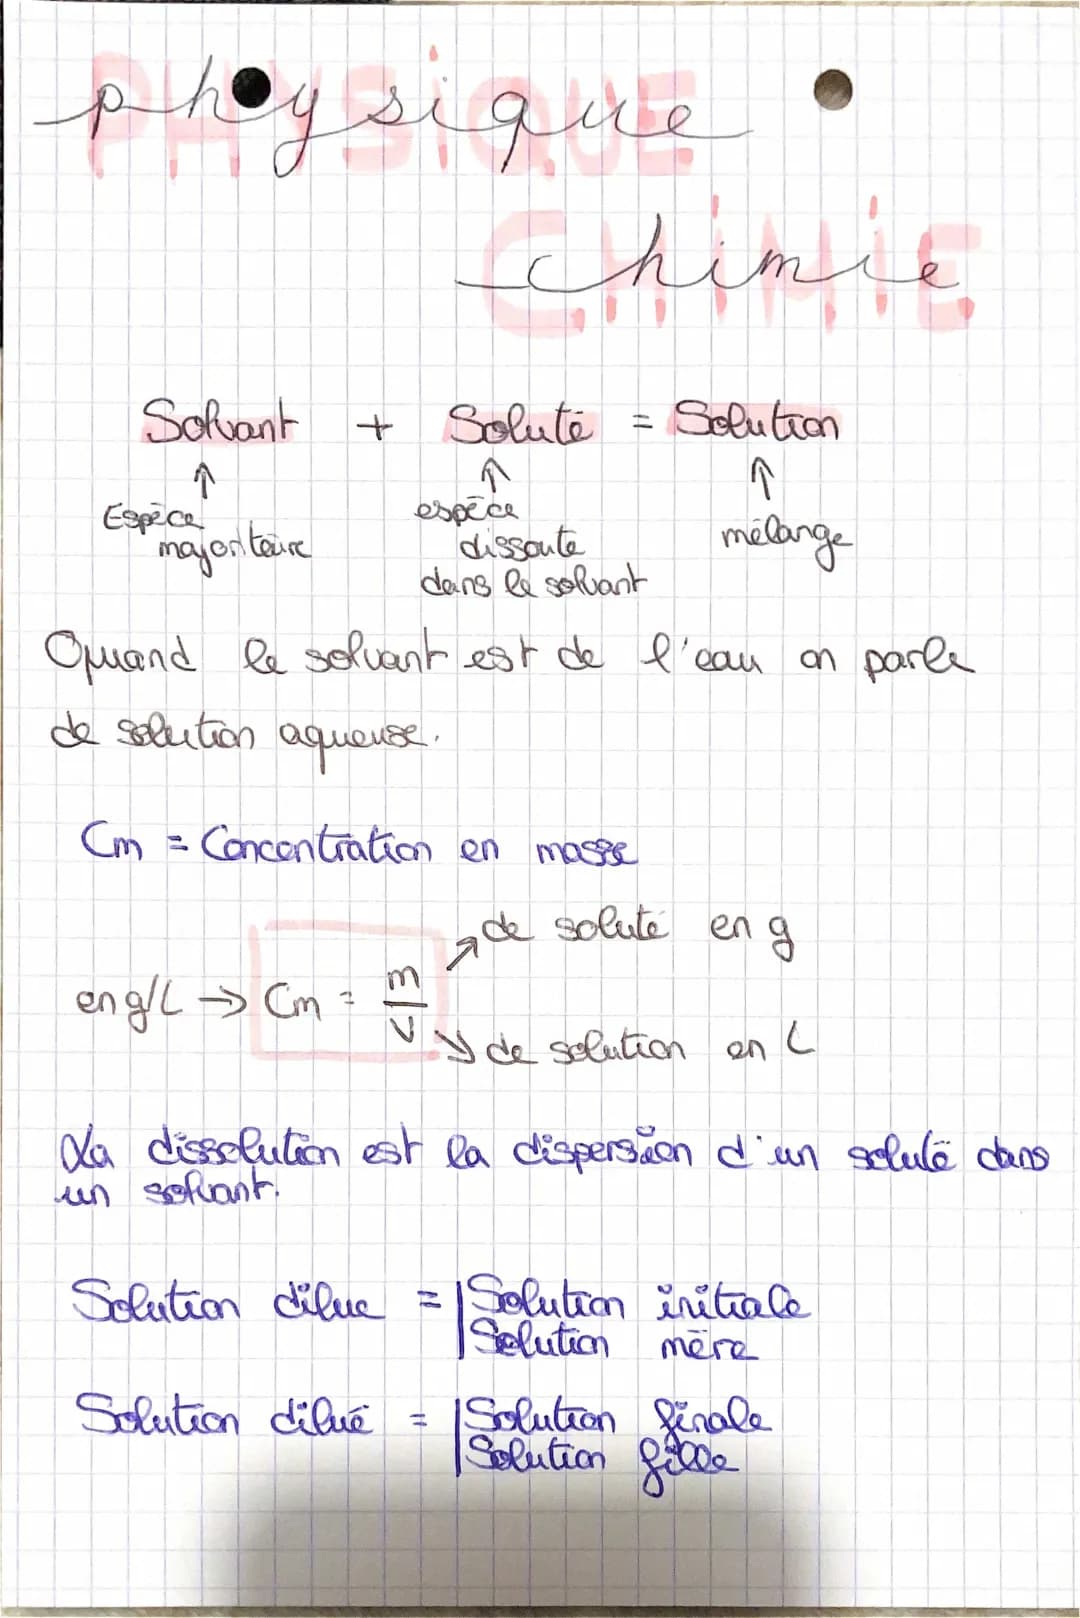 physique
PHYSIQUE
chimie
CHIMIE
Solvant + Soluté = Solution
↑ ↑ ↑
Espèce majoritaire
espèce dissoute dans le solvant
mélange
Quand le solvant est de l'eau on parle
de solution aqueuse.
Cm = Concentration en masse
de soluté en g
en g/L → Cm = m/V
de solution en L
La dissolution est la dispersion d'un soluté dans
un solvant.
Solution dilue = | Solution initiale
| Solution mère
Solution dilué = | Solution finale
| Solution fille